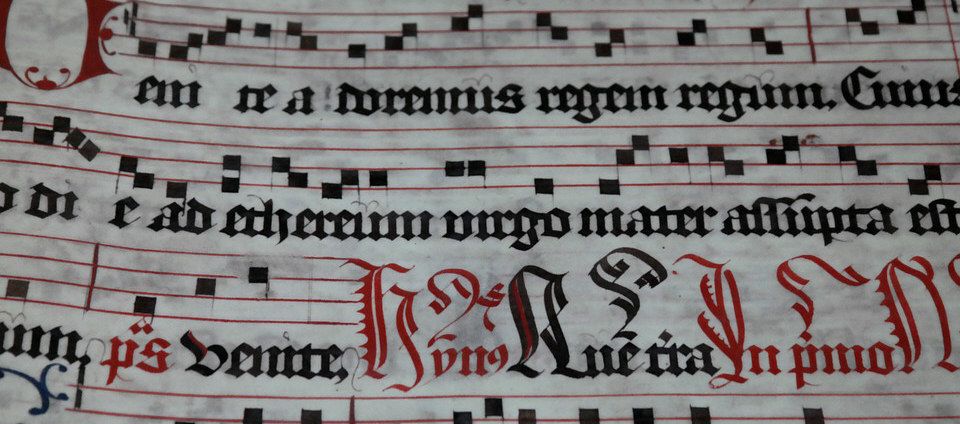 Uenite adoremus regem regum, Cuius
die ad ethereum uirgo mater assūpta est
ps Venite, Hymnꝰ Aue ... In pmo